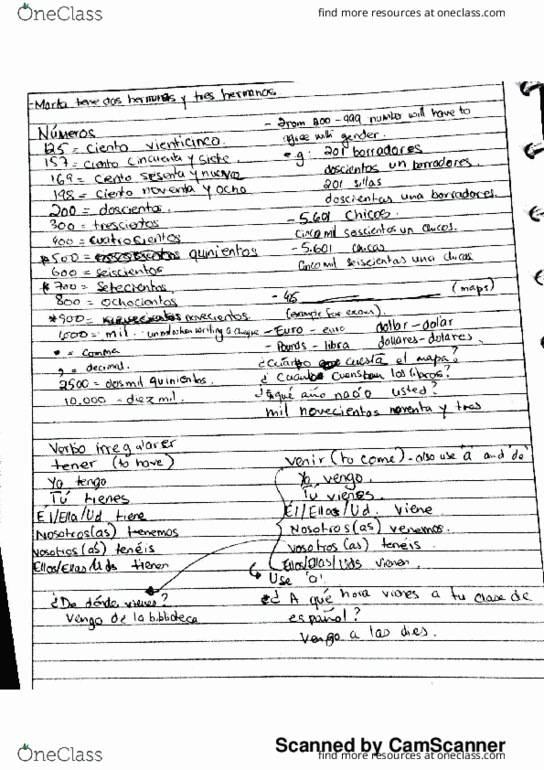 OneClass
find more resources at oneclass.com
Marta tene dos hermanas y tres hermanos.
Números
125 = ciento vienticinco.
157 = ciento cincuenta y siete.
169 = ciento sesenta y nueve
198 = ciento noventa y ocho
200 = doscientos.
300 = trescientos
400 = cuatrocientos
*500 = quinientos
600 = seiscientos
*700 = setecientos
800 = ochocientos
*900 = novecientos
1,000 = mil. un when writing a cheque
• = comma
, = decimal.
2500 = dos mil quinientos.
10.000 - diez mil.
- From 200 - 999 number will have to
gree with gender.
• g: 201 borradores
doscientos un borradores.
201 sillas
doscientas una borradores.
- 5.601 chicos.
cinco mil seiscientos un chicos.
- 5.601 chicas
cinco mil seiscientas una chicas
- 45 (maps)
(example for exam)
- Euro - euro dollar - dólar
- Pounds - libra dollares - dólares.
¿Cuánto cuesta el mapa?
¿Cuánto cuestan los libros?
¿qué año nació usted?
mil novecientos noventa y tres
Verbo irregularer
tener (to have)
Yo tengo
Tú tienes
Él/Ella/Ud tiene
Nosotros(as) tenemos
vosotros(as) tenéis
Ellos/Ellas/Uds tienen
¿De dónde vienes?
Vengo de la biblioteca
venir (to come) - also use 'a' and 'de'
Yo vengo.
Tu vienes.
Él/Ellas/Ud. viene
Nosotros(as) venemos.
vosotros(as) tenéis.
Ellos/Ellas/Uds vienen.
Use 'a'.
¿A qué hora vienes a tu clase de
español?
Vengo a las dies.
Scanned by CamScanner
OneClass
find more resources at oneclass.com